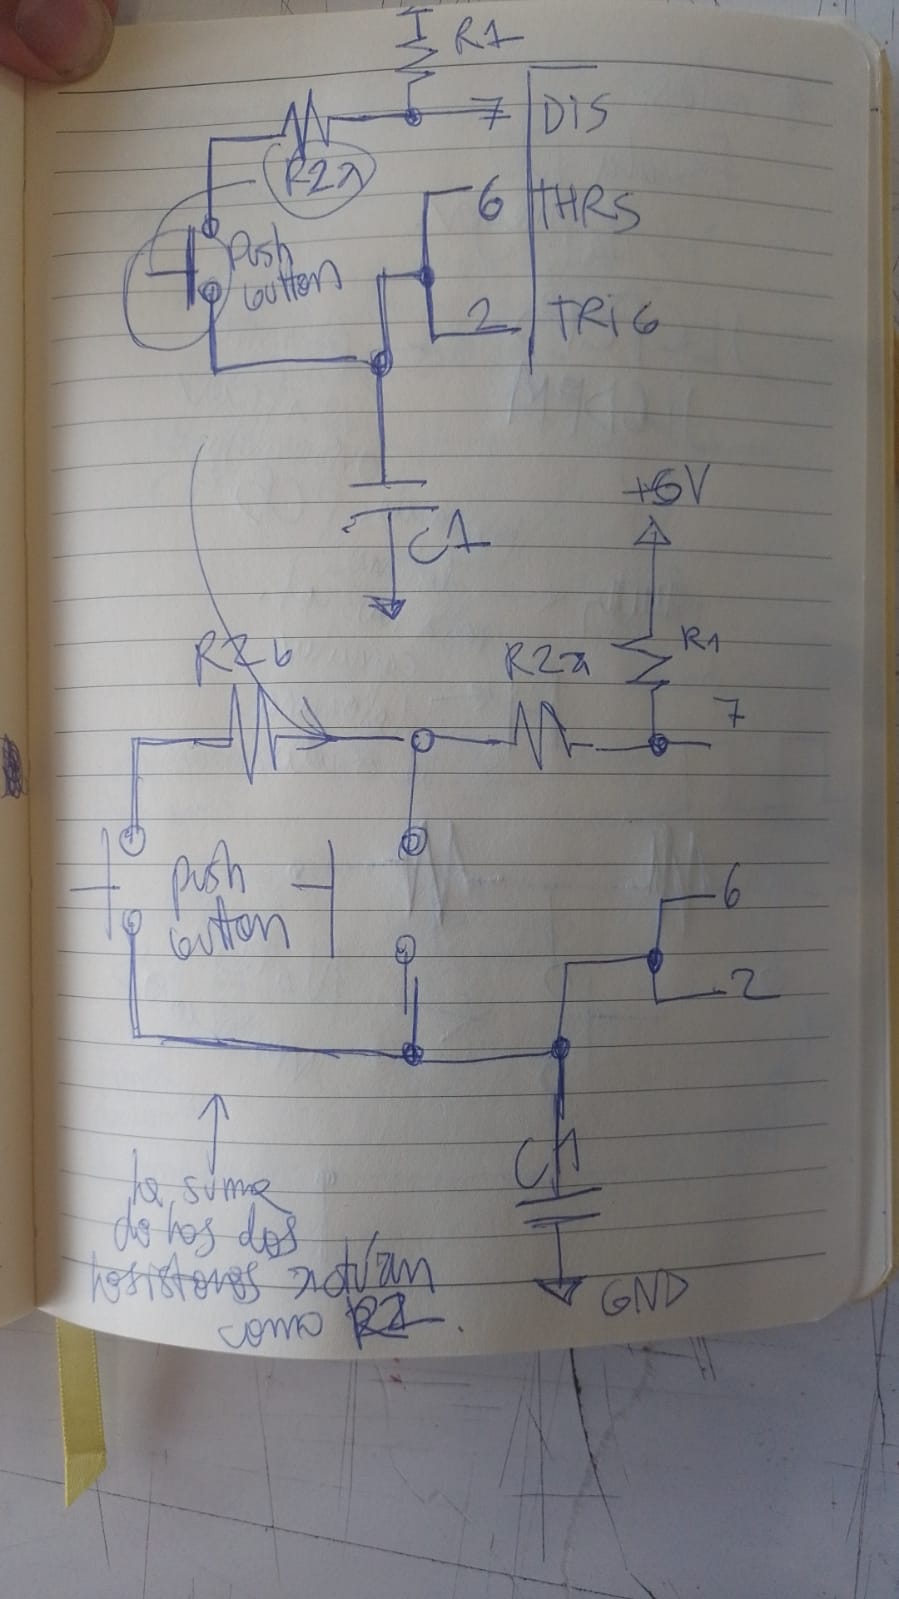 R1
7 DIS
R2a
6 THRS
Push
button
2 TRIG
C1
+6V
R2b R2a R1
7
push
button
6
2
C1
la suma
de los dos
resistores actúan
como R2.
GND